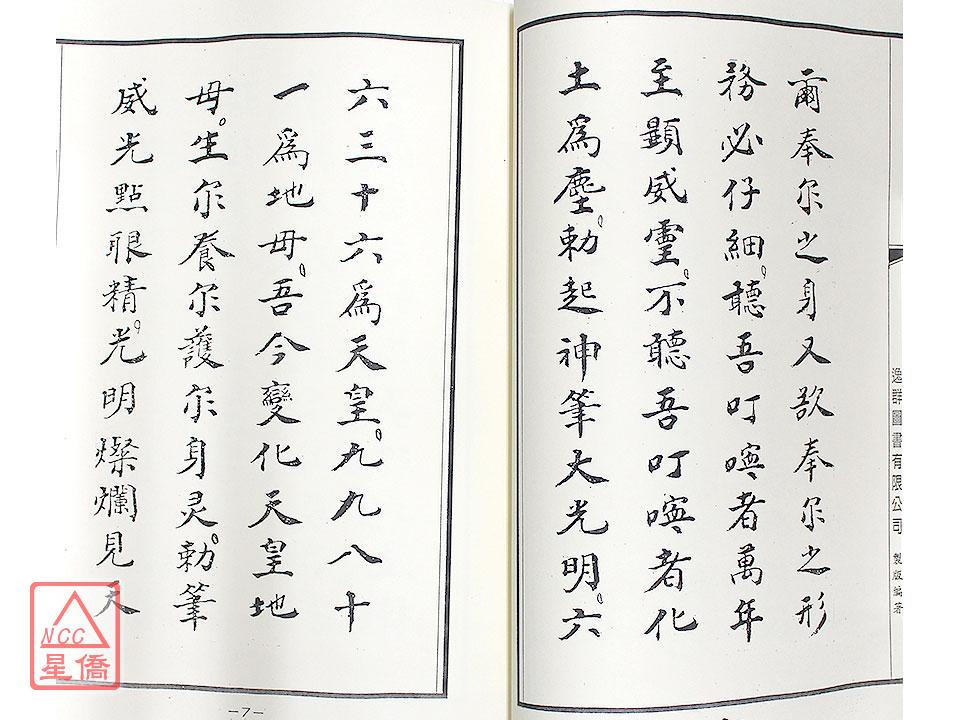 爾奉尔之身又欲奉尔之形
務必仔細。聽吾叮嚀者萬年
至顯威霊。不聽吾叮嚀者化
土為塵。勅起神筆大光明。六
逸群圖書有限公司 製版編著
六三十六為天皇。九九八十
一為地毋。吾今變化天皇地
毋。生尔養尔護尔身灵。勅筆
威光點眼精。光明燦爛見天
—7—
NCC
星僑